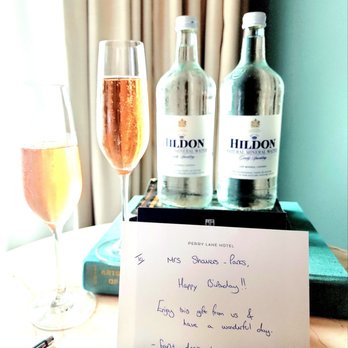 HILDON
NATURAL MINERAL WATER
Gently Sparkling
HILDON
NATURAL MINERAL WATER
Gently Sparkling
PERRY LANE HOTEL
To Mrs Shavers - Parks,
Happy Birthday!!
Enjoy this gift from us &
have a wonderful day.